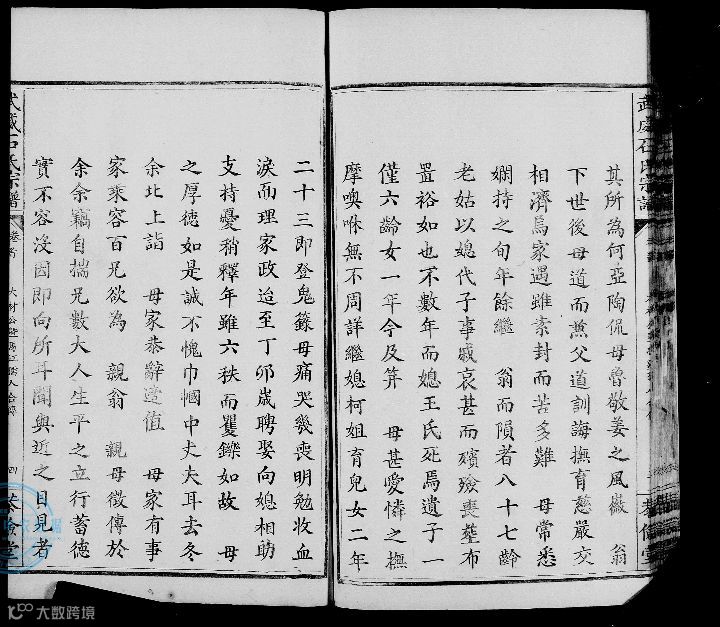 其所為何亞陶侃母魯敬姜之風徽　翁
下世後母道而兼父道訓誨撫育慈嚴交
相濟焉家遇雖素封而苦多難　母常悉
嫻持之旬年餘繼　翁而隕者八十七齡
老姑以媳代子事戚哀甚而殯殮喪葬布
置裕如也不數年而媳王氏死焉遺子一
僅六齡女一年今及笄　母甚愛憐之撫
摩噢咻無不周詳繼媳柯姐育兒女二年
二十三即登鬼籙母痛哭幾喪明勉收血
淚而理家政迨至丁卯歲聘娶向媳相助
支持憂稍釋年雖六秩而矍鑠如故　母
之厚德如是誠不愧巾幗中丈夫耳去冬
余北上詣　母家恭辭適值　母家有事
家乘容百兄欲為　親翁　親母徵傳於
余余竊自揣兄數大人生平之立行蓄德
實不容沒因即向所耳聞與近之目見者
武威石氏宗譜
卷首
四
大数跨境